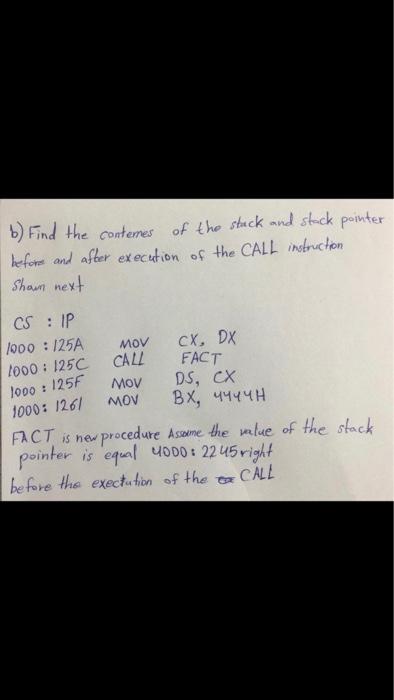 b) Find the contemes of the stack and stack pointer
before and after execution of the CALL instruction
Shown next
CS : IP
1000 : 125A MOV CX, DX
1000 : 125C CALL FACT
1000 : 125F MOV DS, CX
1000: 1261 MOV BX, 4444H
FACT is new procedure Assome the value of the stack
pointer is equal 4000: 2245 right
before the exectution of the CALL